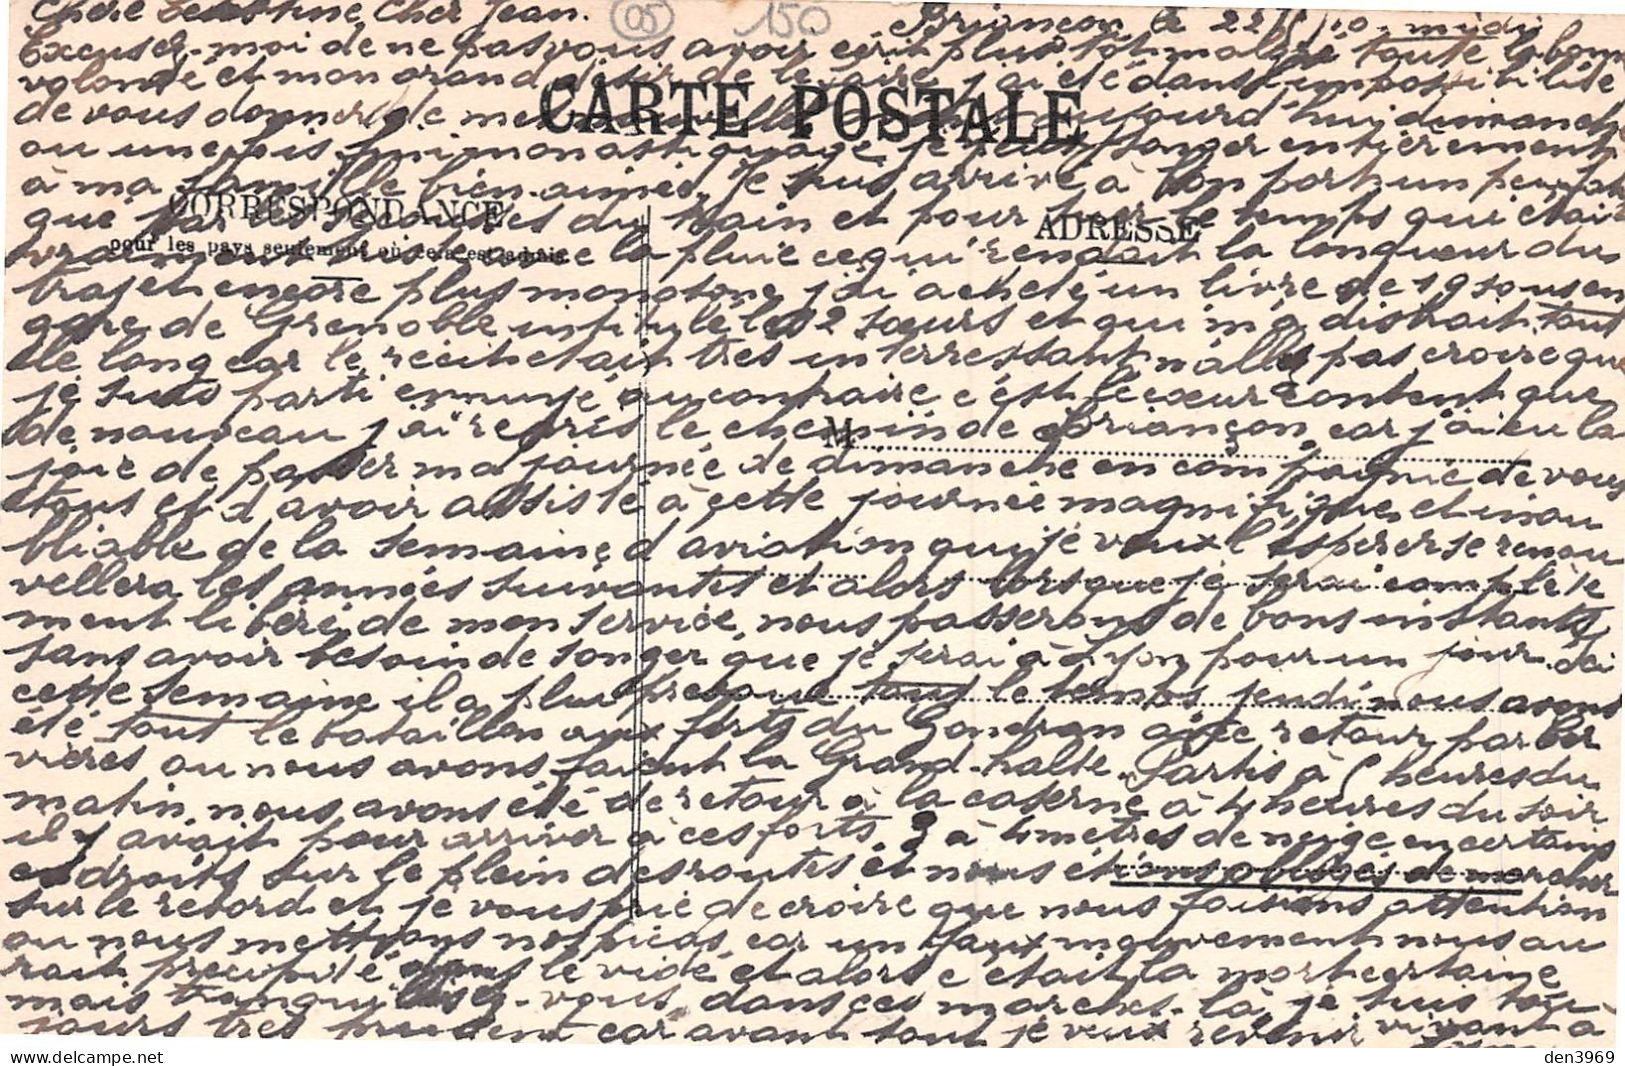 Chère Célestine, Cher Jean. 05 150 Briançon le 22/5/10. midi
Excusez-moi de ne pas vous avoir écrit plus tôt malgré toute la bonne
volonté et mon grand désir de le faire j'ai été dans l'impossibilité
de vous donner de mes nouvelles aujourd'hui dimanche
CARTE POSTALE
ou une fois fini mon astiquage je peux songer entièrement
à ma famille bien-aimée. Je suis arrivé à bon port un peu
CORRESPONDANCE
ADRESSE
que par les secousses du train et pour tuer le temps qui était
pour les pays seulement où cela est admis
vraiment la pluie ce qui rendait la longueur du
trajet encore plus monotone j'ai acheté un livre de 19 sous en
gare de Grenoble intitulé les 2 sœurs et qui m'a distrait tout
le long car le récit était très interressant n'allez pas croire que
je suis parti ennuyé au contraire c'est le cœur content que
de nouveau j'ai repris le chemin de Briançon car j'ai eu la
M
joie de passer ma journée de dimanche en compagnie de vous
tous et d'avoir assisté à cette journée magnifique et inou
bliable de la semaine d'aviation qui je veux l'espérer se renou
vellera les années suivantes et alors lorsque je serai complète
ment libéré de mon service, nous passerons de bons instants
sans avoir besoin de songer que je serai à Lyon pour un jour. Ici
cette semaine il a plu presque tous le temps jeudi nous avons
été tout le bataillon aux forts du Gondran avec retour par Cer
vières ou nous avons faient la Grand-halte. Partis à 5 heures du
matin nous avons été de retour à la caserne à 4 heures du soir
il y avait pour arriver à ces forts 3 à 4 mètres de neige en certains
endroits sur le plein des routes et nous étions obligés de marcher
sur le rebord et je vous prie de croire que nous faisions attention
ou nous mettions nos pieds car un faux mouvement nous au
rait précipité dans le vide et alors c'était la mort certaine
mais tranquillisez-vous, dans ces marches-là je suis tou
jours très prudent car avant tout je veux revenir vivant à
den3969